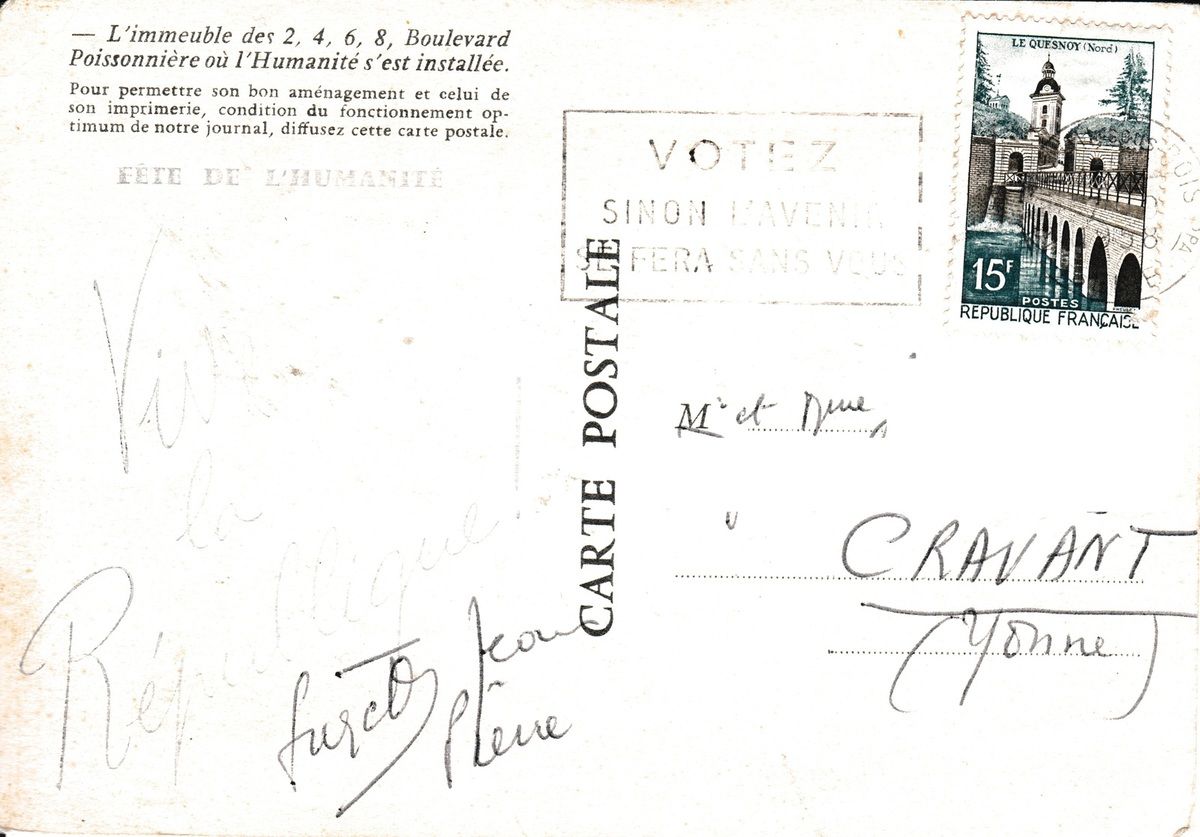 — L'immeuble des 2, 4, 6, 8, Boulevard
Poissonnière où l'Humanité s'est installée.
Pour permettre son bon aménagement et celui de
son imprimerie, condition du fonctionnement op-
timum de notre journal, diffusez cette carte postale.
FÊTE DE L'HUMANITÉ
Vive
la
République!
Suzette Jean
Pierre
CARTE POSTALE
VOTEZ
SINON L'AVENIR
SE FERA SANS VOUS
LE QUESNOY (Nord)
15F
POSTES
REPUBLIQUE FRANÇAISE
Mr et Mme
CRAVANT
(Yonne)